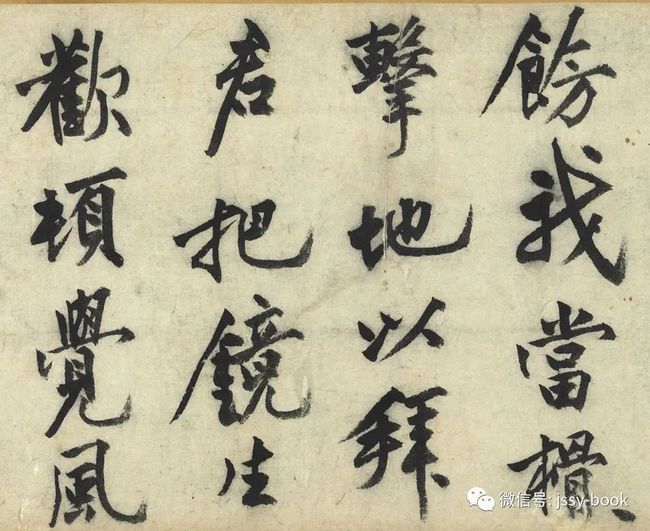 餝我當
擊地以拜
君把鏡生
歡頓覺風
微信号: jssy-book